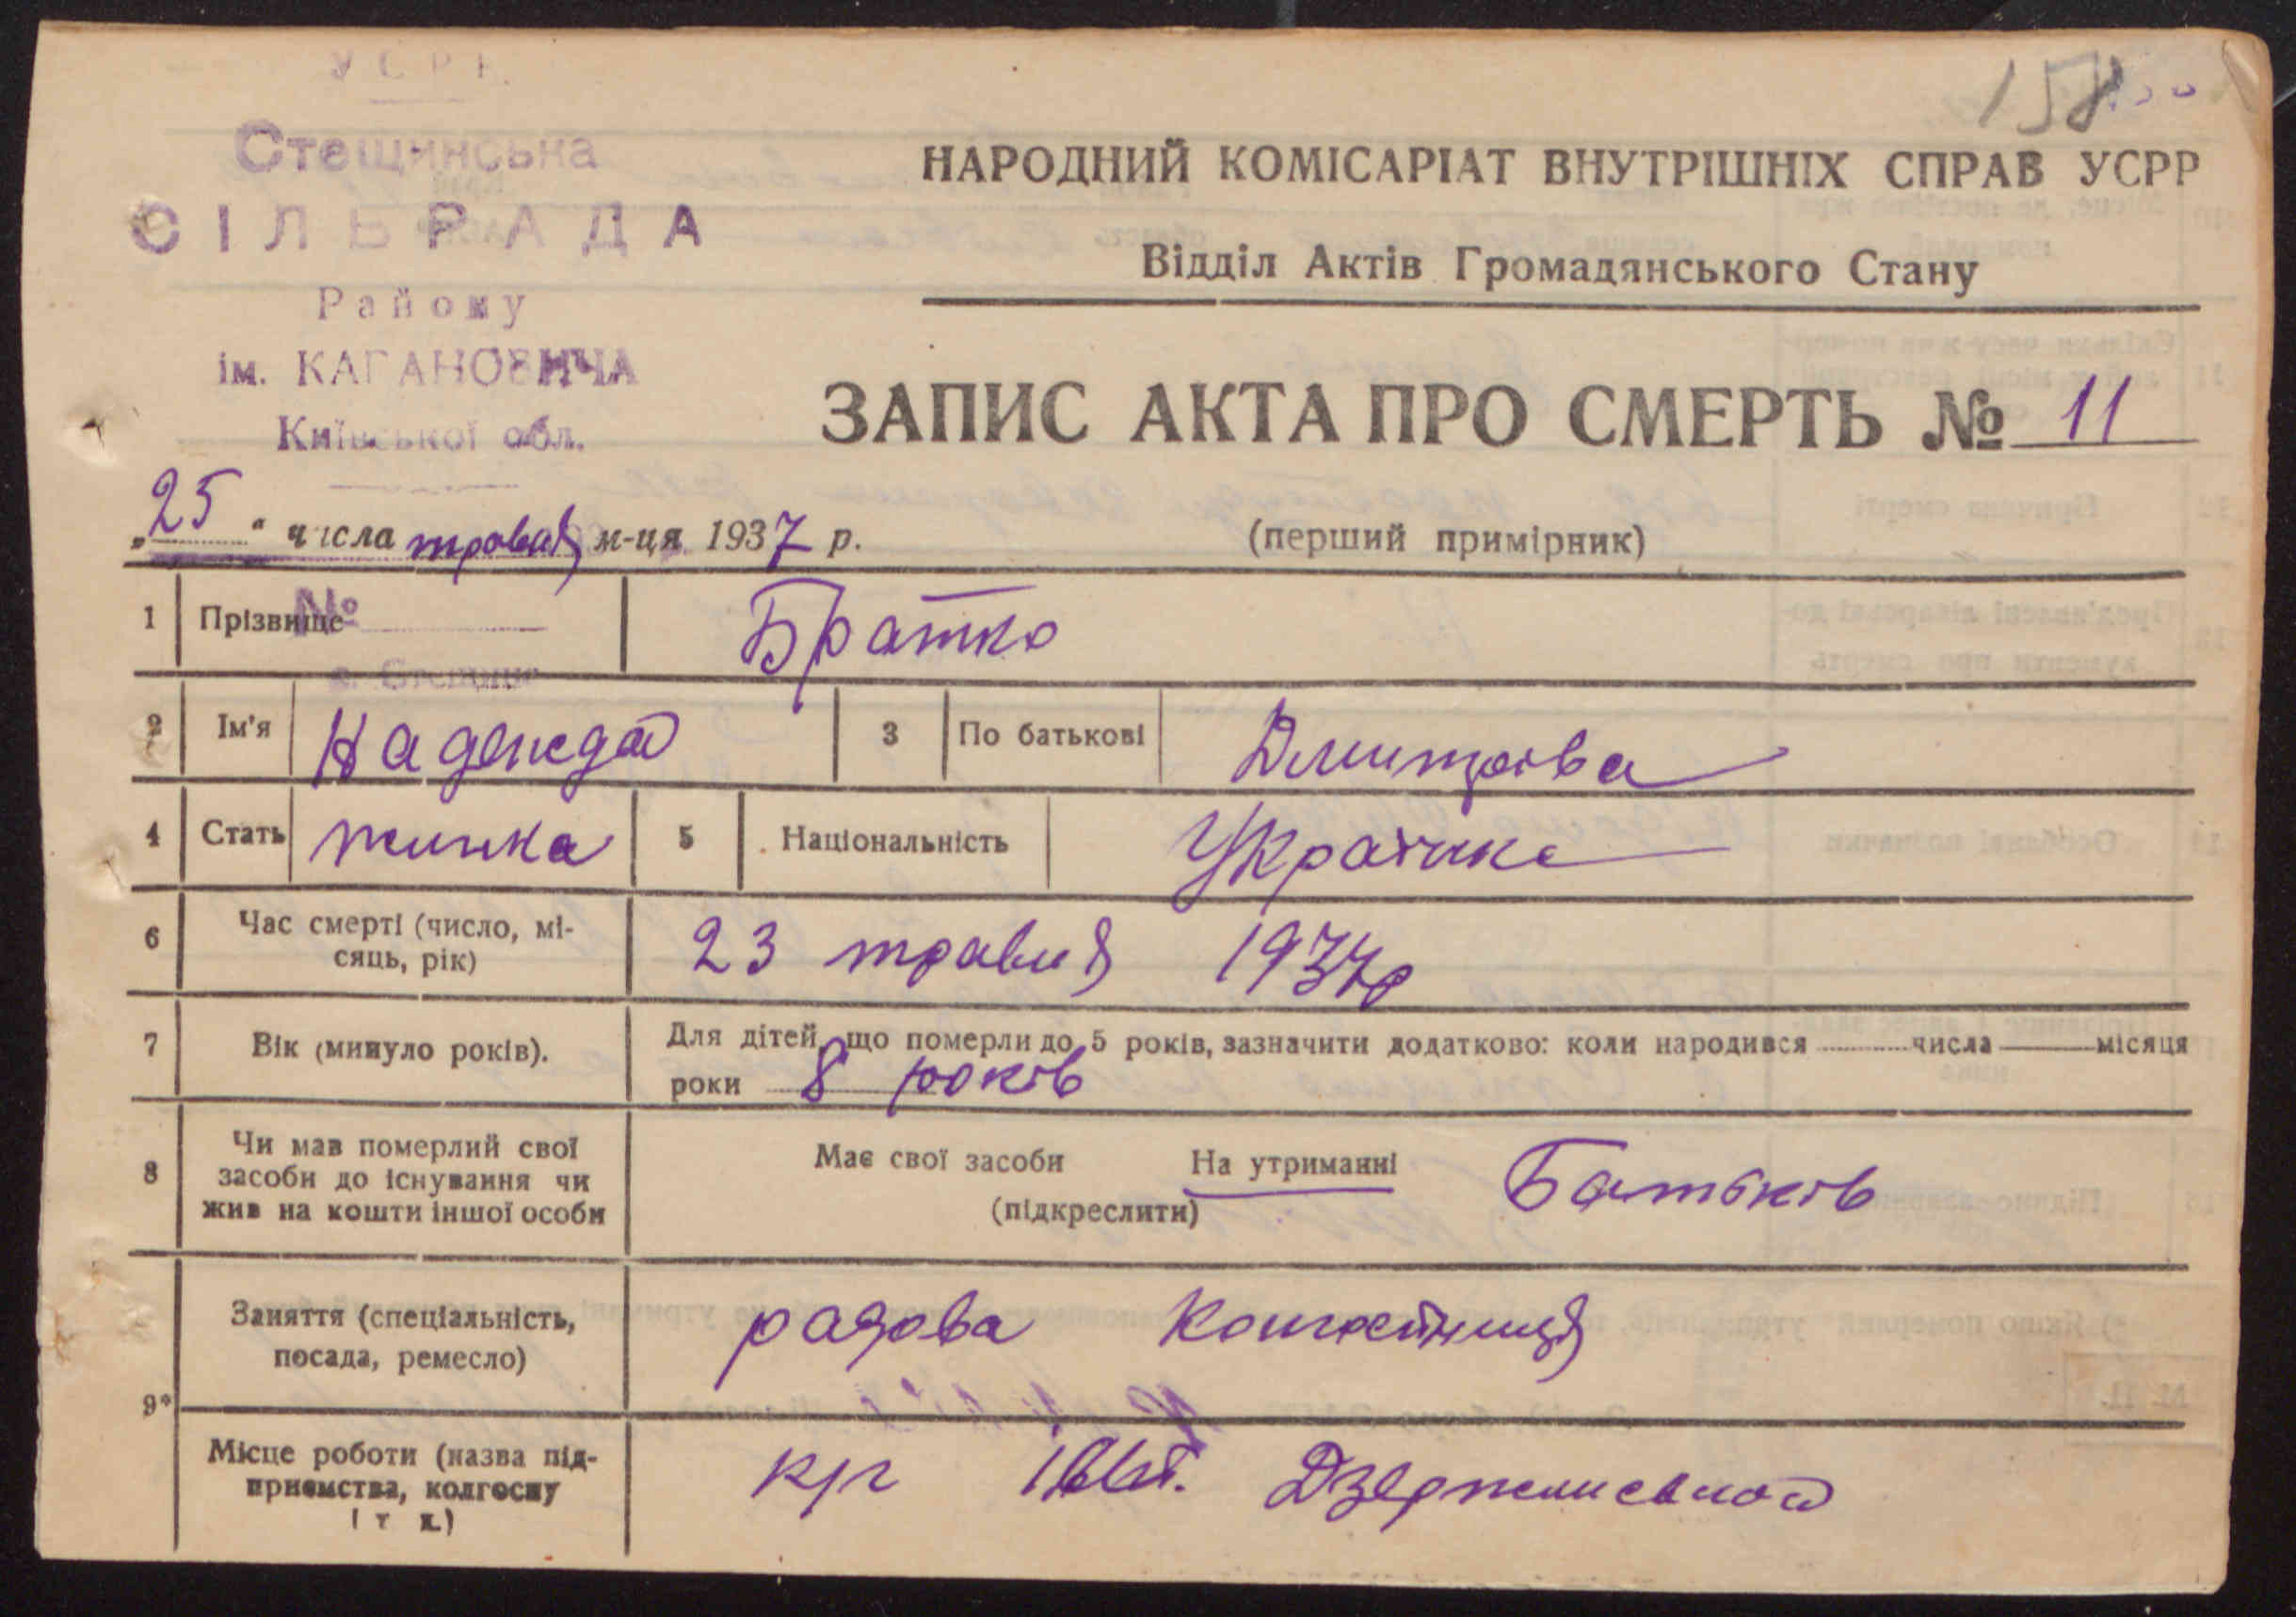 УСРР
158
Стещинська
СІЛЬРАДА
Району
ім. КАГАНОВИЧА
Київської обл.
НАРОДНИЙ КОМІСАРІАТ ВНУТРІШНІХ СПРАВ УСРР
Відділ Актів Громадянського Стану
ЗАПИС АКТА ПРО СМЕРТЬ № 11
„25“ числа травня м-ця 1937 р.
(перший примірник)
№
с. Стещина
1 Прізвище Братко
2 Ім'я Надежда 3 По батькові Дмитрова
4 Стать жинка 5 Національність Украінка
6 Час смерті (число, мі-
сяць, рік) 23 травня 1937р
7 Вік (минуло років). Для дітей, що померли до 5 років, зазначити додатково: коли народився числа місяця
роки 8 років
8 Чи мав померлий свої
засоби до існування чи
жив на кошти іншої особи
Має свої засоби На утриманні Батьків
(підкреслити)
9*) Заняття (спеціальність,
посада, ремесло) рядова
Місце роботи (назва під-
приємства, колгоспу
і т д.) Дзержинського